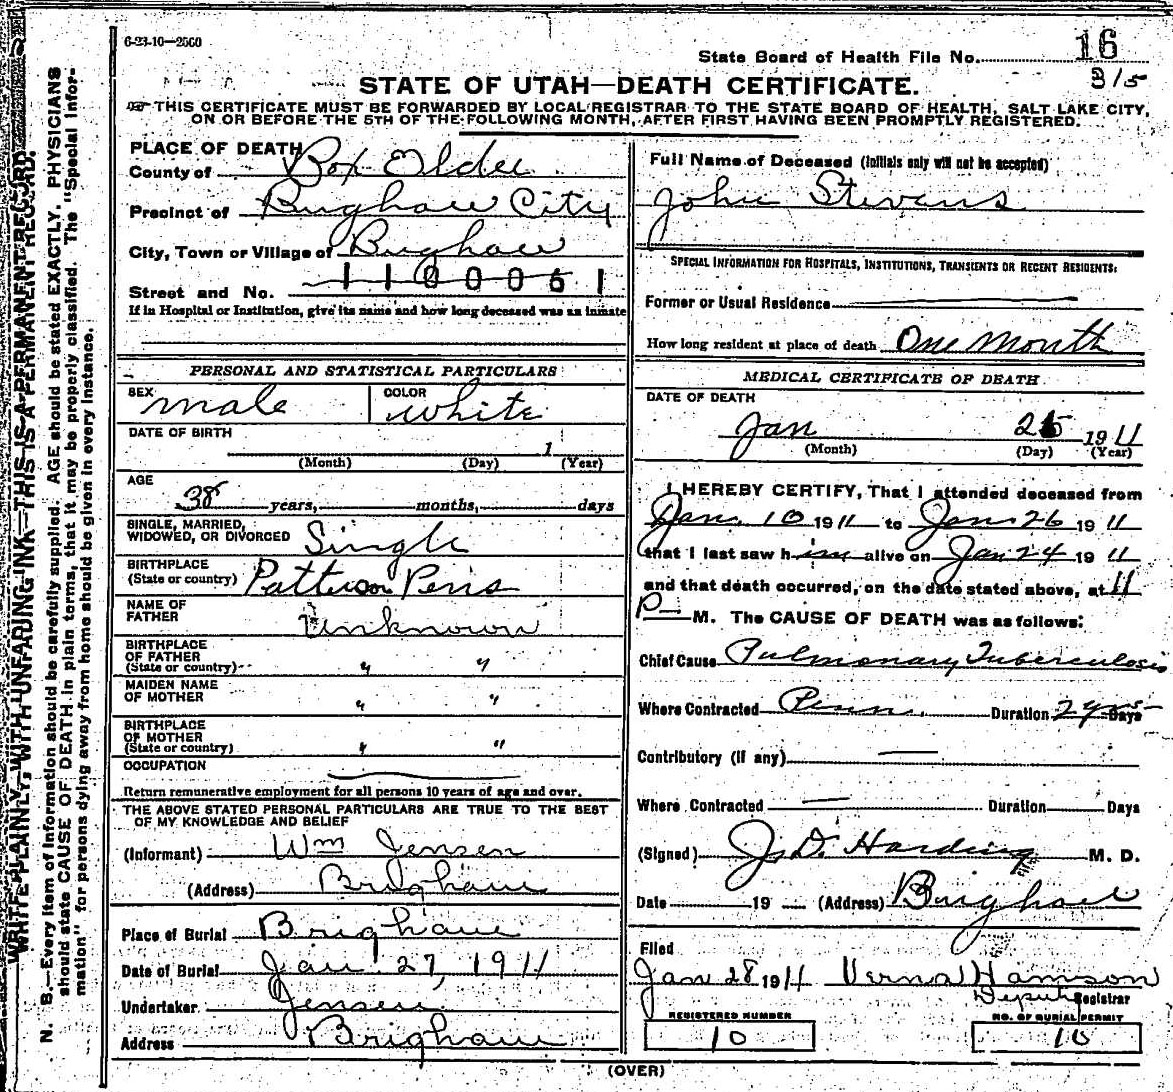 6-23-10-2500
State Board of Health File No. 16
3/5
STATE OF UTAH—DEATH CERTIFICATE.
THIS CERTIFICATE MUST BE FORWARDED BY LOCAL REGISTRAR TO THE STATE BOARD OF HEALTH, SALT LAKE CITY,
ON OR BEFORE THE 5TH OF THE FOLLOWING MONTH, AFTER FIRST HAVING BEEN PROMPTLY REGISTERED.
WRITE PLAINLY, WITH UNFADING INK—THIS IS A PERMANENT RECORD.
N. B.—Every item of Information should be carefully supplied. AGE should be stated EXACTLY. PHYSICIANS
should state CAUSE OF DEATH in plain terms, that it may be properly classified. The "Special Infor-
mation" for persons dying away from home should be given in every instance.
PLACE OF DEATH
County of Box Elder
Precinct of Brigham City
City, Town or Village of Brigham
1100061
Street and No.
If in Hospital or Institution, give its name and how long deceased was an inmate
PERSONAL AND STATISTICAL PARTICULARS
SEX male COLOR white
DATE OF BIRTH
1
(Month) (Day) (Year)
AGE
38 years, months, days
SINGLE, MARRIED,
WIDOWED, OR DIVORCED Single
BIRTHPLACE
(State or country) Patterson
NAME OF
FATHER Unknown
BIRTHPLACE
OF FATHER
(State or country) " "
MAIDEN NAME
OF MOTHER " "
BIRTHPLACE
OF MOTHER
(State or country) " "
OCCUPATION
Return remunerative employment for all persons 10 years of age and over.
THE ABOVE STATED PERSONAL PARTICULARS ARE TRUE TO THE BEST
OF MY KNOWLEDGE AND BELIEF
(Informant) Wm Jensen
(Address) Brigham
Place of Burial Brigham
Date of Burial Jan 27, 1911
Undertaker Jensen
Address Brigham
Full Name of Deceased (Initials only will not be accepted)
John Stevens
SPECIAL INFORMATION FOR HOSPITALS, INSTITUTIONS, TRANSIENTS OR RECENT RESIDENTS:
Former or Usual Residence
How long resident at place of death One Month
MEDICAL CERTIFICATE OF DEATH
DATE OF DEATH
Jan 1911
(Month) (Day) (Year)
I HEREBY CERTIFY, That I attended deceased from
Jan. 10 1911 to Jan. 26 1911
that I last saw him alive on Jan 24 1911
and that death occurred, on the date stated above, at 11
P M. The CAUSE OF DEATH was as follows:
Chief Cause Pulmonary Tuberculosis
Where Contracted Penn. Duration 2 yrs Days
Contributory (if any)
Where Contracted Duration Days
(Signed) Harding M. D.
Date 19 (Address) Brigham
Filed
Jan 28 1911 Verna Hamson
Deputy Registrar
REGISTERED NUMBER NO. OF BURIAL PERMIT
10 10
(OVER)